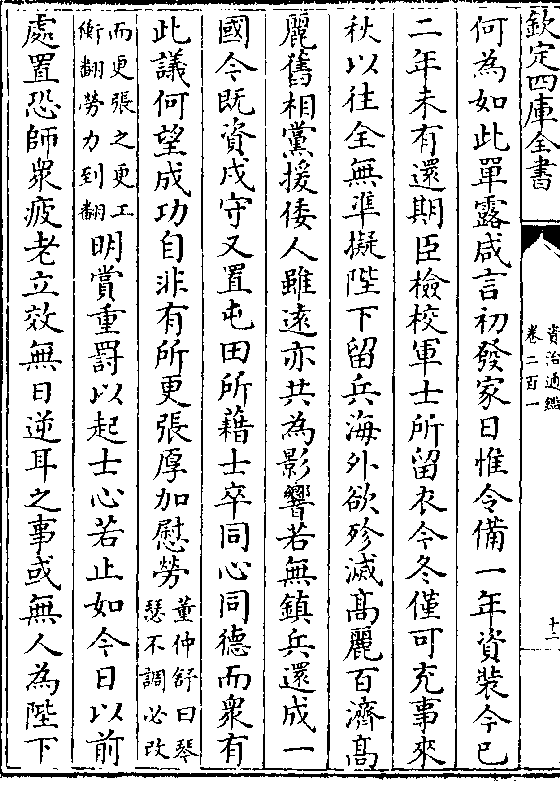 欽定四庫全書
資治通鑑
卷二百一
十二
何為如此單露咸言初發家日惟令備一年資裝今已
二年未有還期臣檢校軍士所留衣今冬僅可充事來
秋以往全無準擬陛下留兵海外欲殄滅髙麗百濟髙
麗舊相黨援倭人雖遠亦共為影響若無鎮兵還成一
國今既資戍守又置屯田所藉士卒同心同德而衆有
此議何望成功自非有所更張厚加慰勞董仲舒曰琴
瑟不調必改
而更張之更工
衡翻勞力到翻明賞重罰以起士心若止如今日以前
處置恐師衆疲老立效無日逆耳之事或無人為陛下